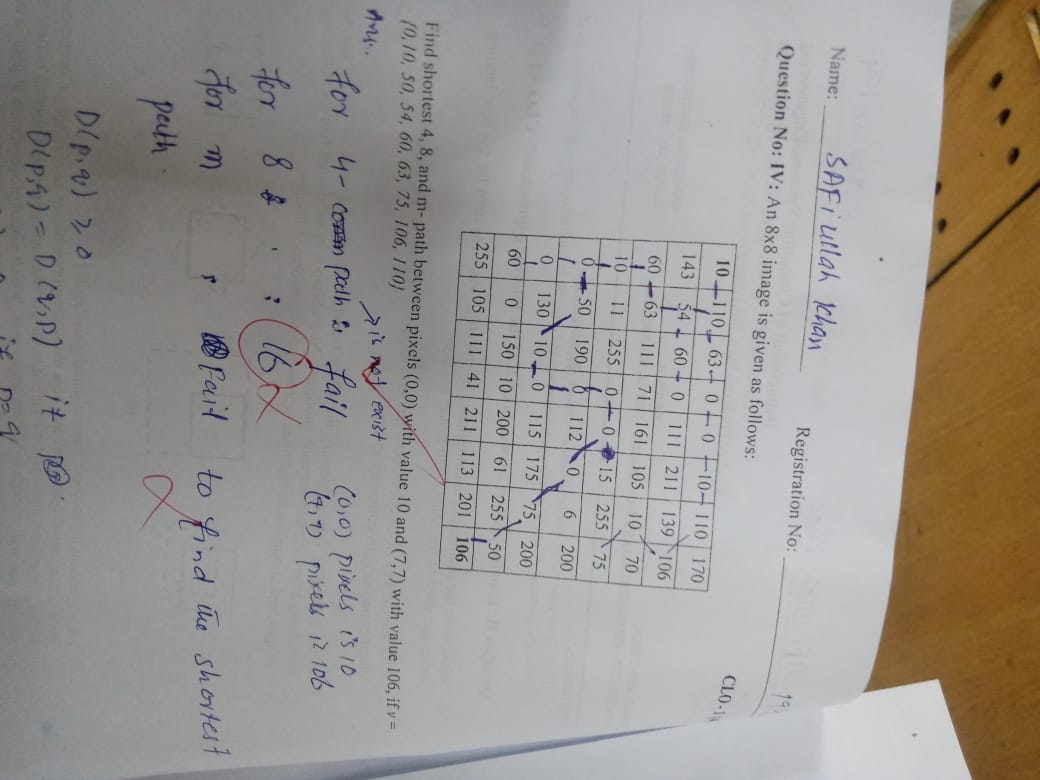 Name: SAFiullah Khan Registration No:
CLO-1
Question No: IV: An 8x8 image is given as follows:
10 110 63 0 0 10 110 170
143 54 60 0 111 211 139 106
60 63 111 71 161 105 10 70
10 11 255 0 0 15 255 75
0 50 190 0 112 0 6 200
0 130 10 0 115 175 75 200
60 0 150 10 200 61 255 50
255 105 111 41 211 113 201 106
Find shortest 4, 8, and m- path between pixels (0,0) with value 10 and (7,7) with value 106, if v =
{0,10, 50, 54, 60, 63, 75, 106, 110}
Ans..
is not exist
For 4- path is fail
(0,0) pixels is 10
(7,7) pixels is 106
for 8 : 16
for m fail to find the shortest
path.
D(p,q) ≥ 0
D(p,q) = D(q,p) if
if p=q